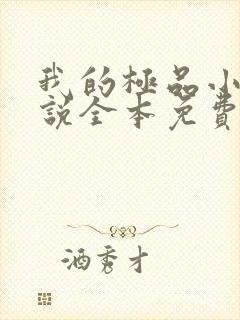 我的極品小
說全本免費
酒秀才